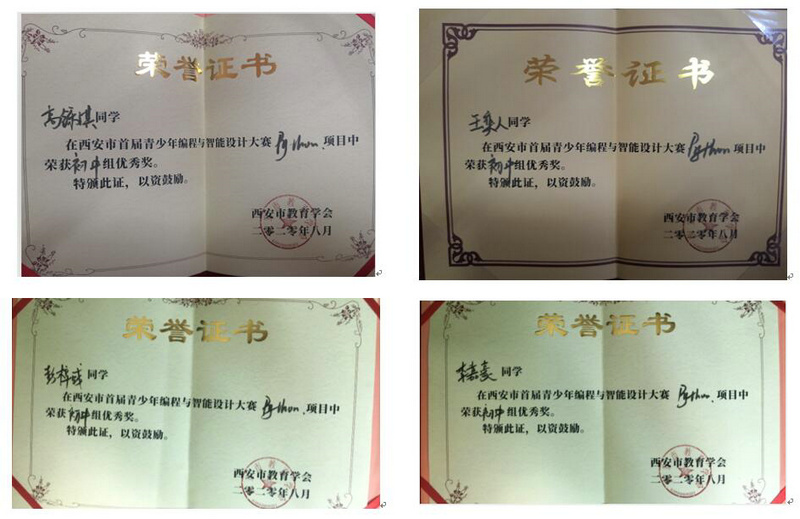 荣誉证书
高 同学
在西安市首届青少年编程与智能设计大赛 Python 项目中
荣获初中组优秀奖。
特颁此证，以资鼓励。
西安市教育学会
二零二零年八月
荣誉证书
王奕人同学
在西安市首届青少年编程与智能设计大赛 Python 项目中
荣获初中组优秀奖。
特颁此证，以资鼓励。
西安市教育学会
二零二零年八月
荣誉证书
彭梓 同学
在西安市首届青少年编程与智能设计大赛 Python 项目中
荣获初中组优秀奖。
特颁此证，以资鼓励。
西安市教育学会
二零二零年八月
荣誉证书
嘉豪 同学
在西安市首届青少年编程与智能设计大赛 Python 项目中
荣获初中组优秀奖。
特颁此证，以资鼓励。
西安市教育学会
二零二零年八月